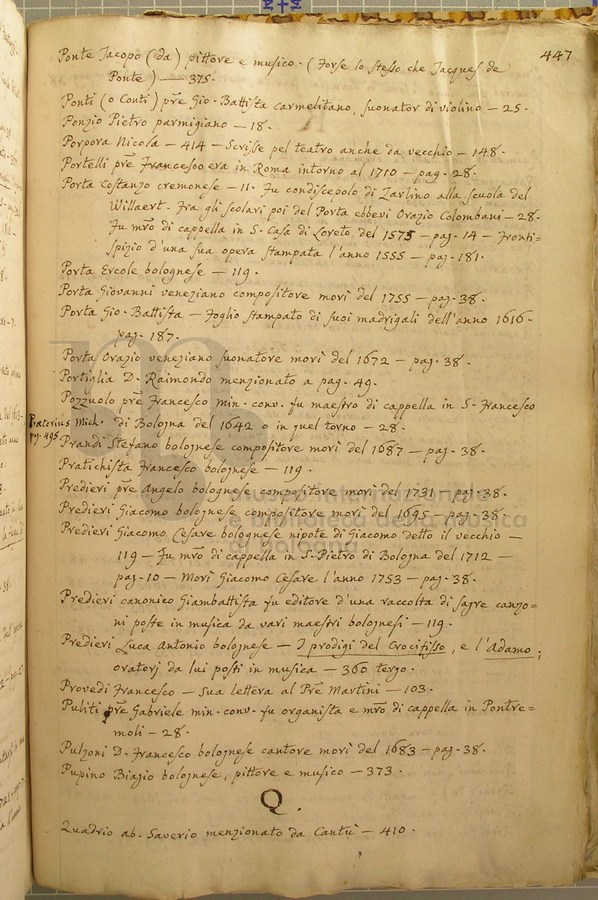 447
Ponte Jacopo (da) pittore e musico. (Forse lo stesso che Jacques de
Ponte) — 375.
Ponti (o Conti) pre Gio. Battista carmelitano, suonator di violino — 25.
Ponzio Pietro parmigiano — 18.
Porpora Nicola — 414 — Scrisse pel teatro anche da vecchio — 148.
Portelli pre Francesco era in Roma intorno al 1710 — pag. 28.
Porta Costanzo cremonese — 11. Fu condiscepolo di Zarlino alla scuola del
Willaert. Fra gli scolari poi del Porta ebbevi Orazio Colombani — 28.
Fu mro di cappella in S. Casa di Loreto del 1575 — pag. 14 — Fronti=
spizio d'una sua opera stampata l'anno 1555 — pag. 181.
Porta Ercole bolognese — 119.
Porta Giovanni veneziano compositore morì del 1755 — pag. 38.
Porta Gio. Battista — Foglio stampato di suoi madrigali dell'anno 1616.
pag. 187.
Porta Orazio veneziano suonatore morì del 1672 — pag. 38.
Portiglia D. Raimondo menzionato a pag. 49.
Pozzuolo pre Francesco min. conv. fu maestro di cappella in S. Francesco
di Bologna del 1642 o in quel torno — 28.
Pratorius Mich.
pag. 495
Prandi Stefano bolognese compositore morì del 1687 — pag. 38.
Pratichista Francesco bolognese — 119.
Predieri pre Angelo bolognese compositore morì del 1731 — pag. 38.
Predieri Giacomo bolognese compositore morì del 1695 — pag. 38.
Predieri Giacomo Cesare bolognese nipote di Giacomo detto il vecchio —
119 — Fu mro di cappella in S. Pietro di Bologna del 1712 —
pag. 10 — Morì Giacomo Cesare l'anno 1753 — pag. 38.
Predieri canonico Giambattista fu editore d'una raccolta di sagre canzo=
ni poste in musica da vari maestri bolognesi — 119.
Predieri Luca Antonio bolognese — I prodigi del Crocifisso, e l'Adamo,
oratorj da lui posti in musica — 360 tergo.
Provedi Francesco — Sua lettera al Pre Martini — 103.
Puliti pre Gabriele min. conv. fu organista e mro di cappella in Pontre=
moli — 28.
Pulzoni D. Francesco bolognese cantore morì del 1683 — pag. 38.
Pupino Biagio bolognese, pittore e musico — 373.
Q.
Quadrio ab. Saverio menzionato da Cantù — 410.